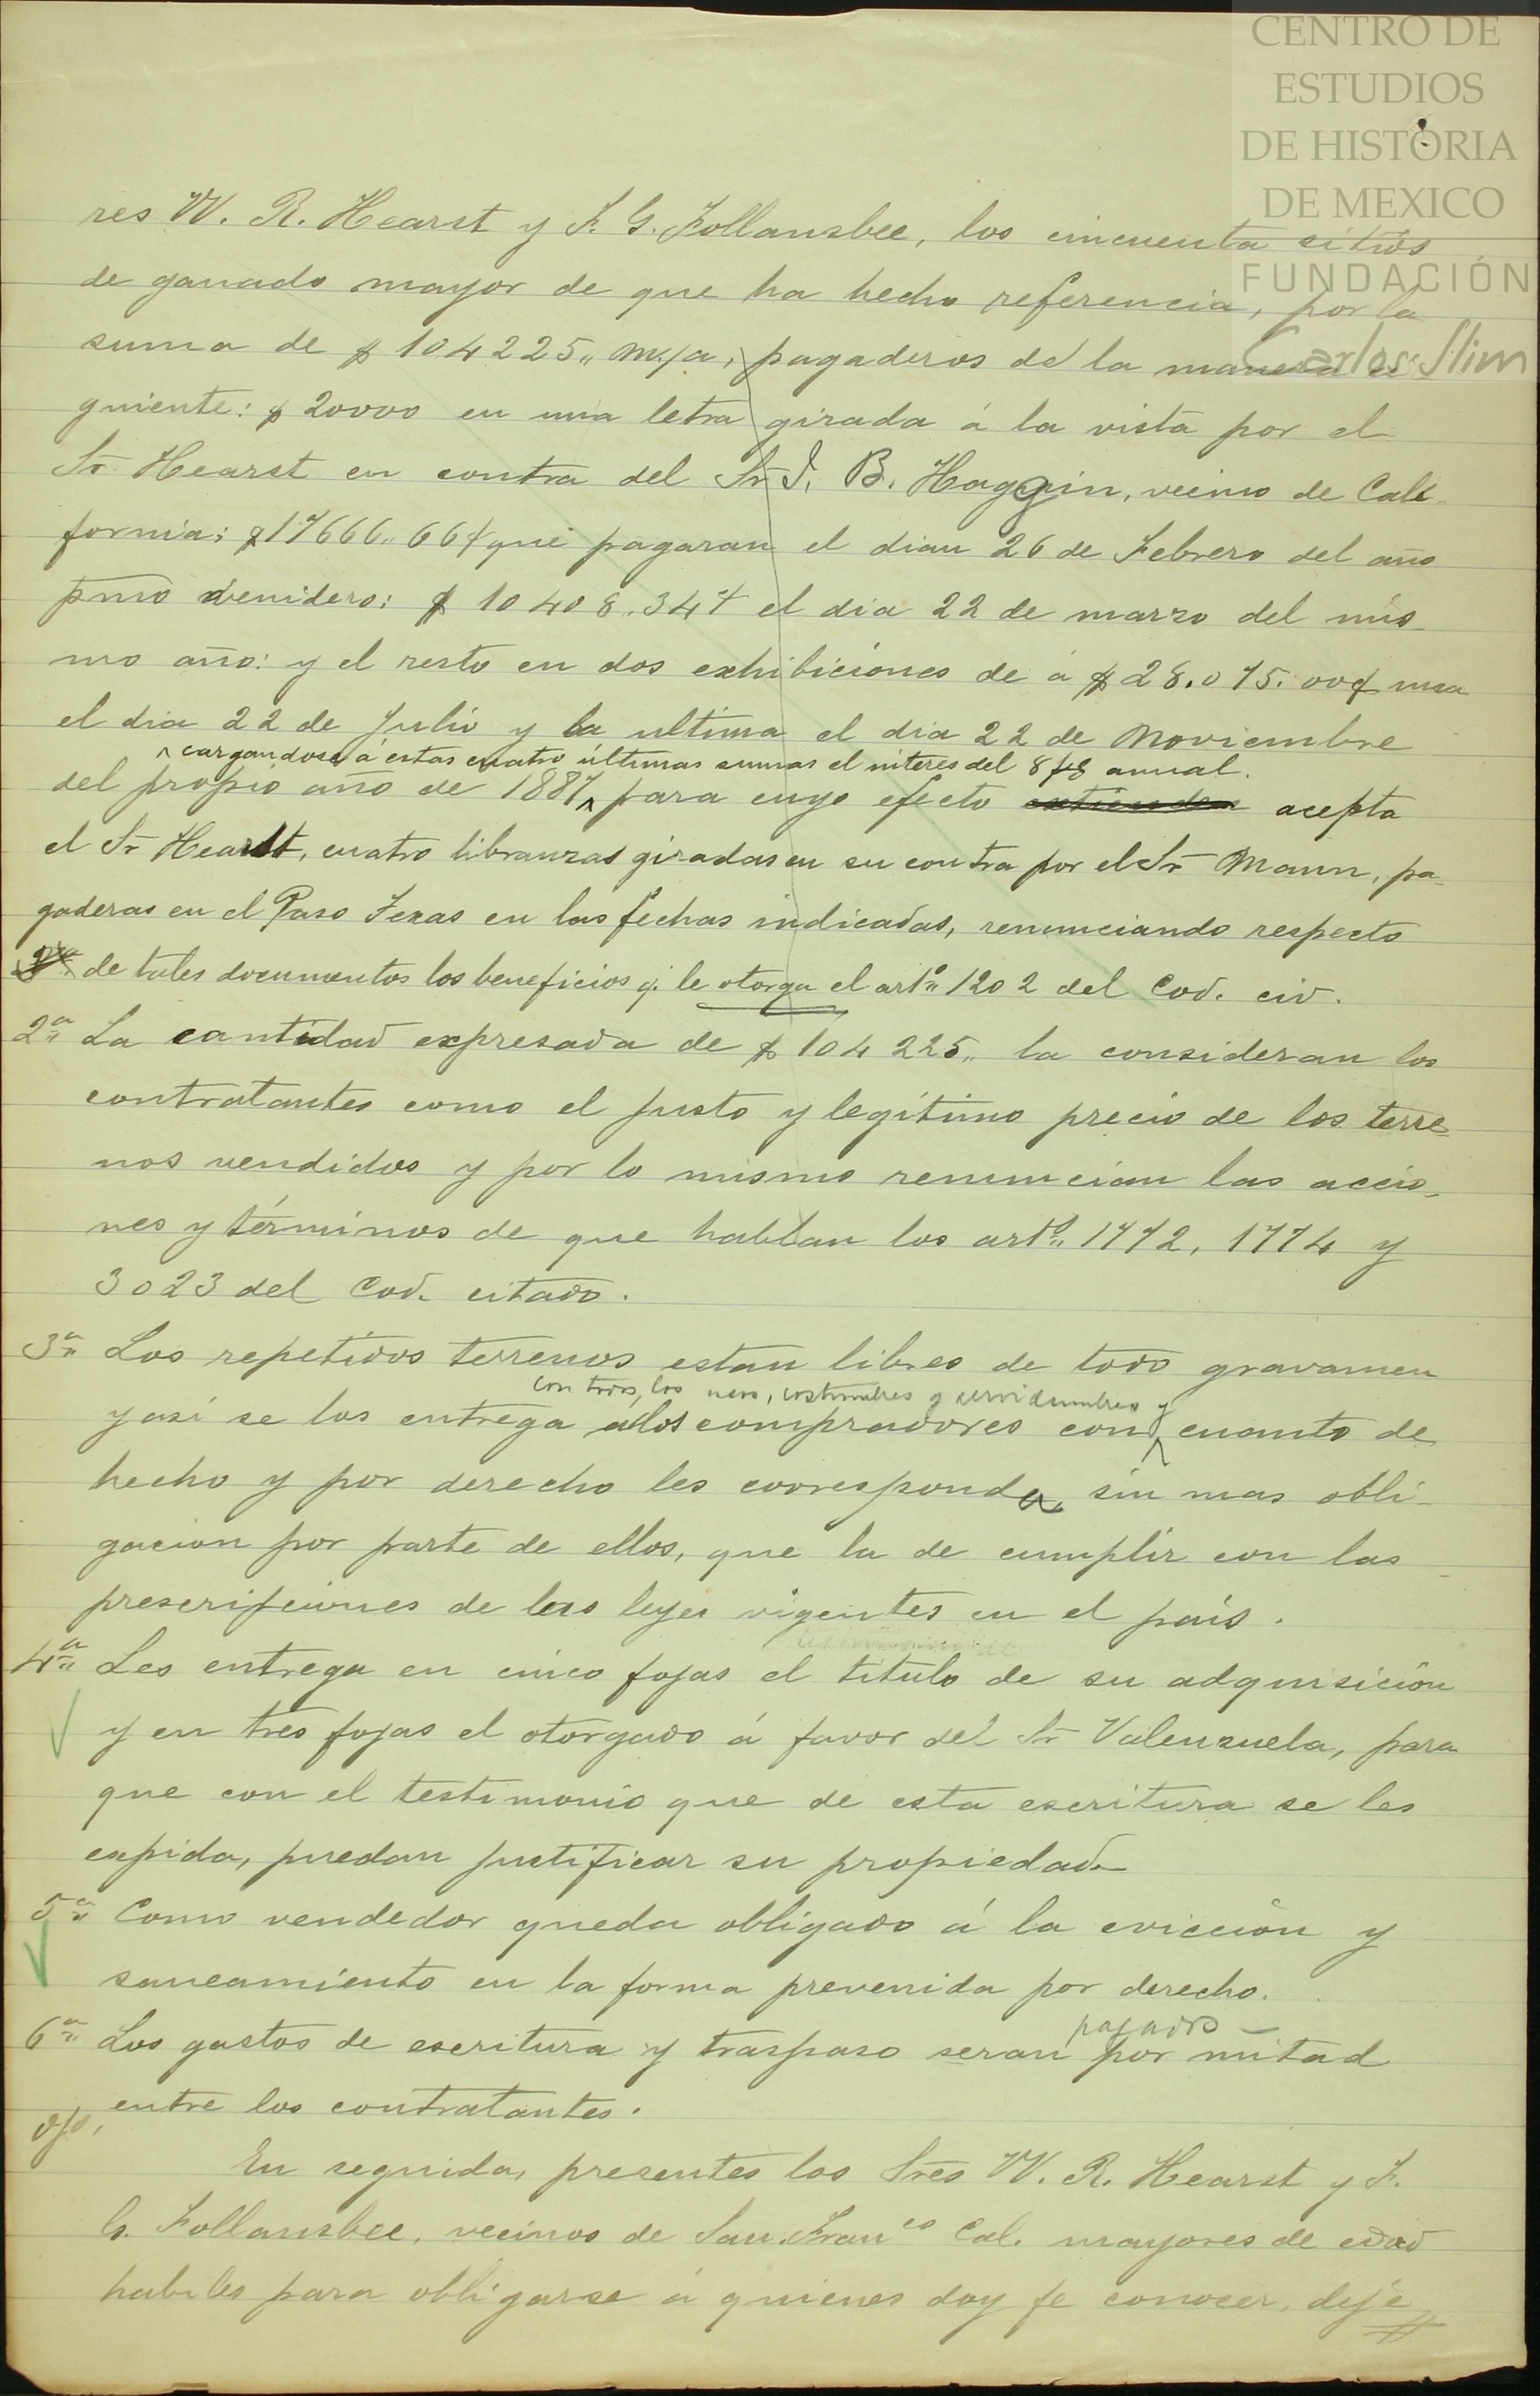 CENTRO DE
ESTUDIOS
DE HISTORIA
DE MEXICO
FUNDACIÓN
Carlos Slim
res W. R. Hearst y F. G. Follansbee, los cincuenta sitios
de ganado mayor de que ha hecho referencia, por la
suma de $ 104225,, m/a, pagaderos de la manera si
guiente: $ 20000 en una letra girada á la vista por el
Sr. Hearst en contra del Sr J. B. Haggin, vecino de Cali-
fornia: $17666,, 66¢ que pagaran el dia 26 de Febrero del año
pmo venidero: $ 10408,, 34¢ el dia 22 de marzo del mis
mo año: y el resto en dos exhibiciones de á $ 28.075. 00¢ una
el dia 22 de Julio y la ultima el dia 22 de Noviembre
cargandose á estas cuatro últimas sumas el interes del 8 anual.
del propio año de 1887 para cuyo efecto extienden acepta
el Sr Hearst, cuatro libranzas giradas en su contra por el Sr Mann, pa-
gaderas en el Paso Texas en las fechas indicadas, renunciando respecto
de tales documentos los beneficios q. le otorga el arto 1202 del Cod. civ.
2a La cantidad expresada de $ 104225,, la consideran los
contratantes como el justo y legítimo precio de los terre-
nos vendidos y por lo mismo renuncian las accio-
nes y términos de que hablan los arts 1772, 1774 y
3023 del Cod. citado.
3a Los repetidos terrenos estan libres de todo gravamen
con todos, los usos, costumbres y servidumbres y
y asi se los entrega a los compradores con cuanto de
hecho y por derecho les corresponda, sin mas obli-
gacion por parte de ellos, que la de cumplir con las
prescripciones de las leyes vigentes en el país.
4a Les entrega en cinco fojas el título de su adquisición
y en tres fojas el otorgado á favor del Sr Valenzuela, para
que con el testimonio que de esta escritura se les
expida, puedan justificar su propiedad.
5a Como vendedor queda obligado á la evicción y
saneamiento en la forma prevenida por derecho.
pagados
6a Los gastos de escritura y traspaso seran por mitad
entre los contratantes.
ojo,
En seguida, presentes los Sres W. R. Hearst y F.
G. Follansbee, vecinos de San. Franco Cal. mayores de edad
habiles para obligarse á quienes doy fe conocer, dijé